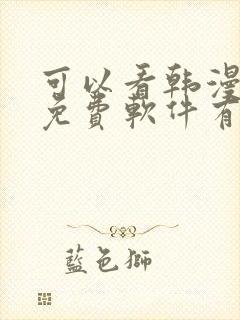 可以看韩漫
免费软件有
蓝色狮